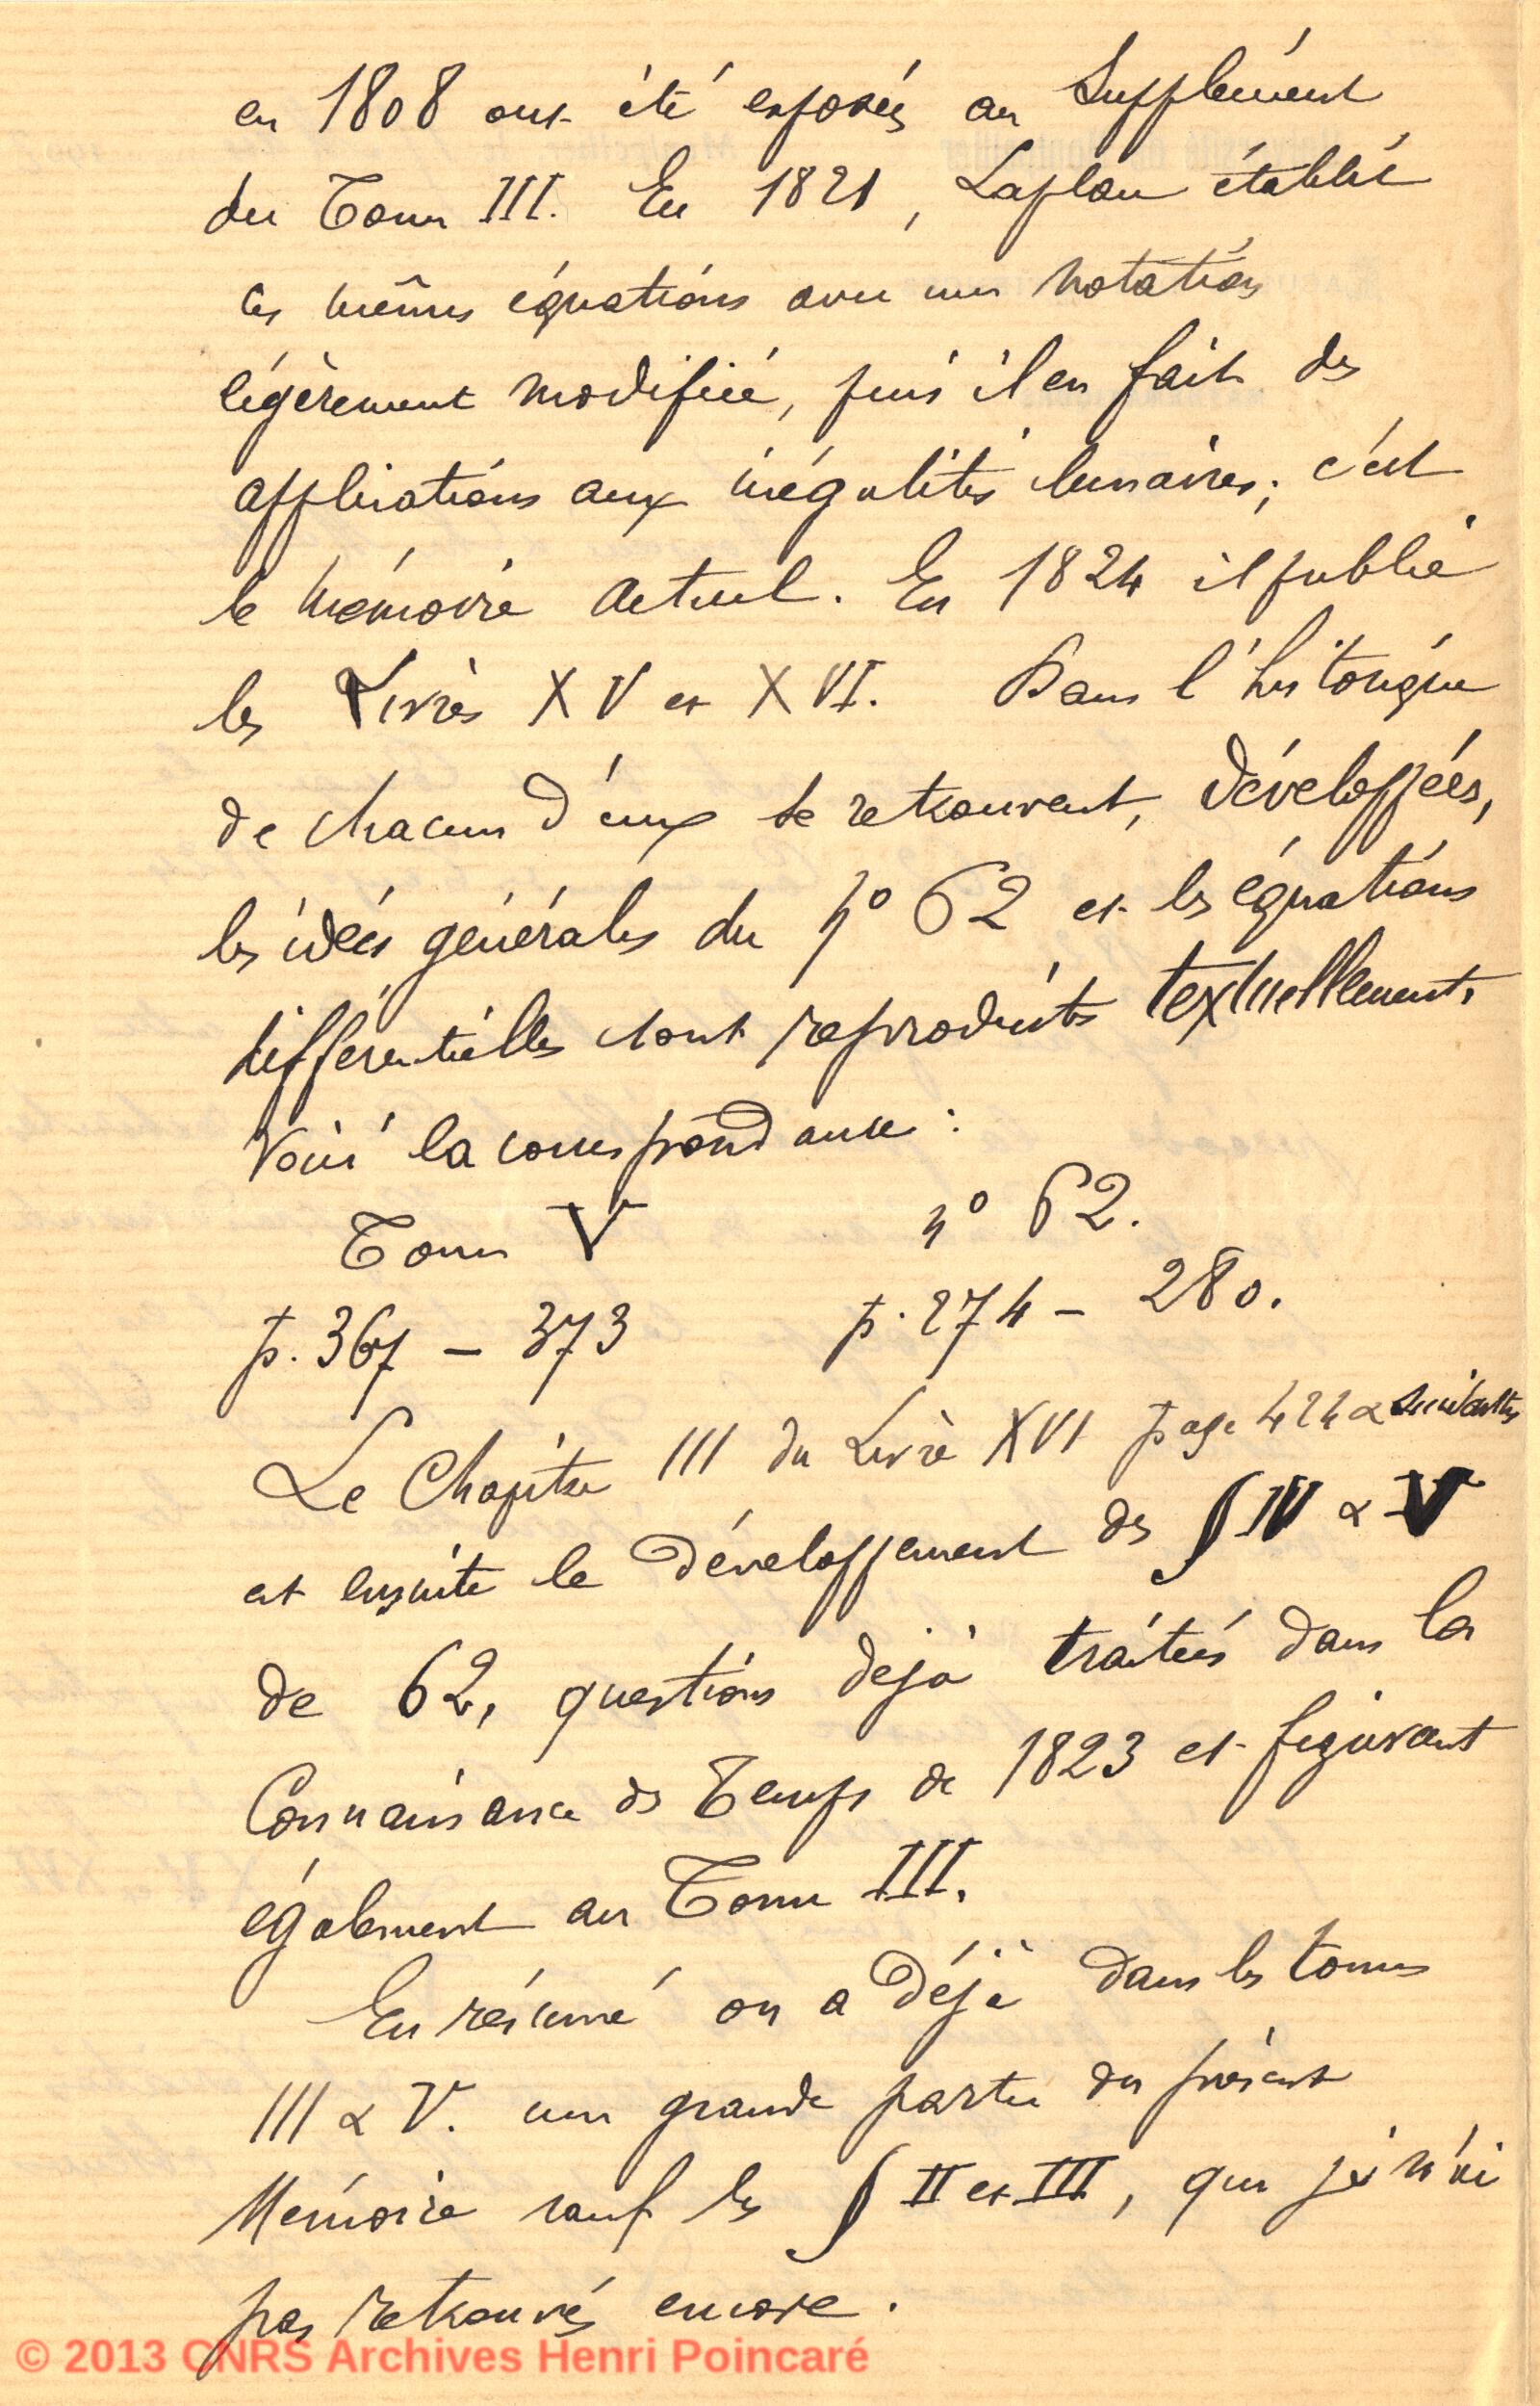 en 1808 ont été exposés au Supplément
du Tome III. En 1821, Laplace établit
ces mêmes équations avec une notation
légèrement modifiée, puis il en fait des
applications aux inégalités lunaires; c'est
le mémoire actuel. En 1824 il publie
les Livres XV et XVI. Dans l'historique
de chacun d'eux se retrouvent, développées,
les idées générales du nº 62 et les équations
différentielles sont reproduites textuellement.
Voici la correspondance :
Tome V nº 62.
p. 367 – 373 p. 274 – 280.
Le Chapitre III du Livre XVI page 424 & suivantes
est ensuite le développement des § IV & V
de 62, questions déjà traitées dans la
Connaissance des Temps de 1823 et figurant
également au Tome III.
En résumé on a déjà dans les tomes
III & V. une grande partie du présent
Mémoire sauf les § II et III, que je n'ai
pas retrouvés encore.
© 2013 CNRS Archives Henri Poincaré